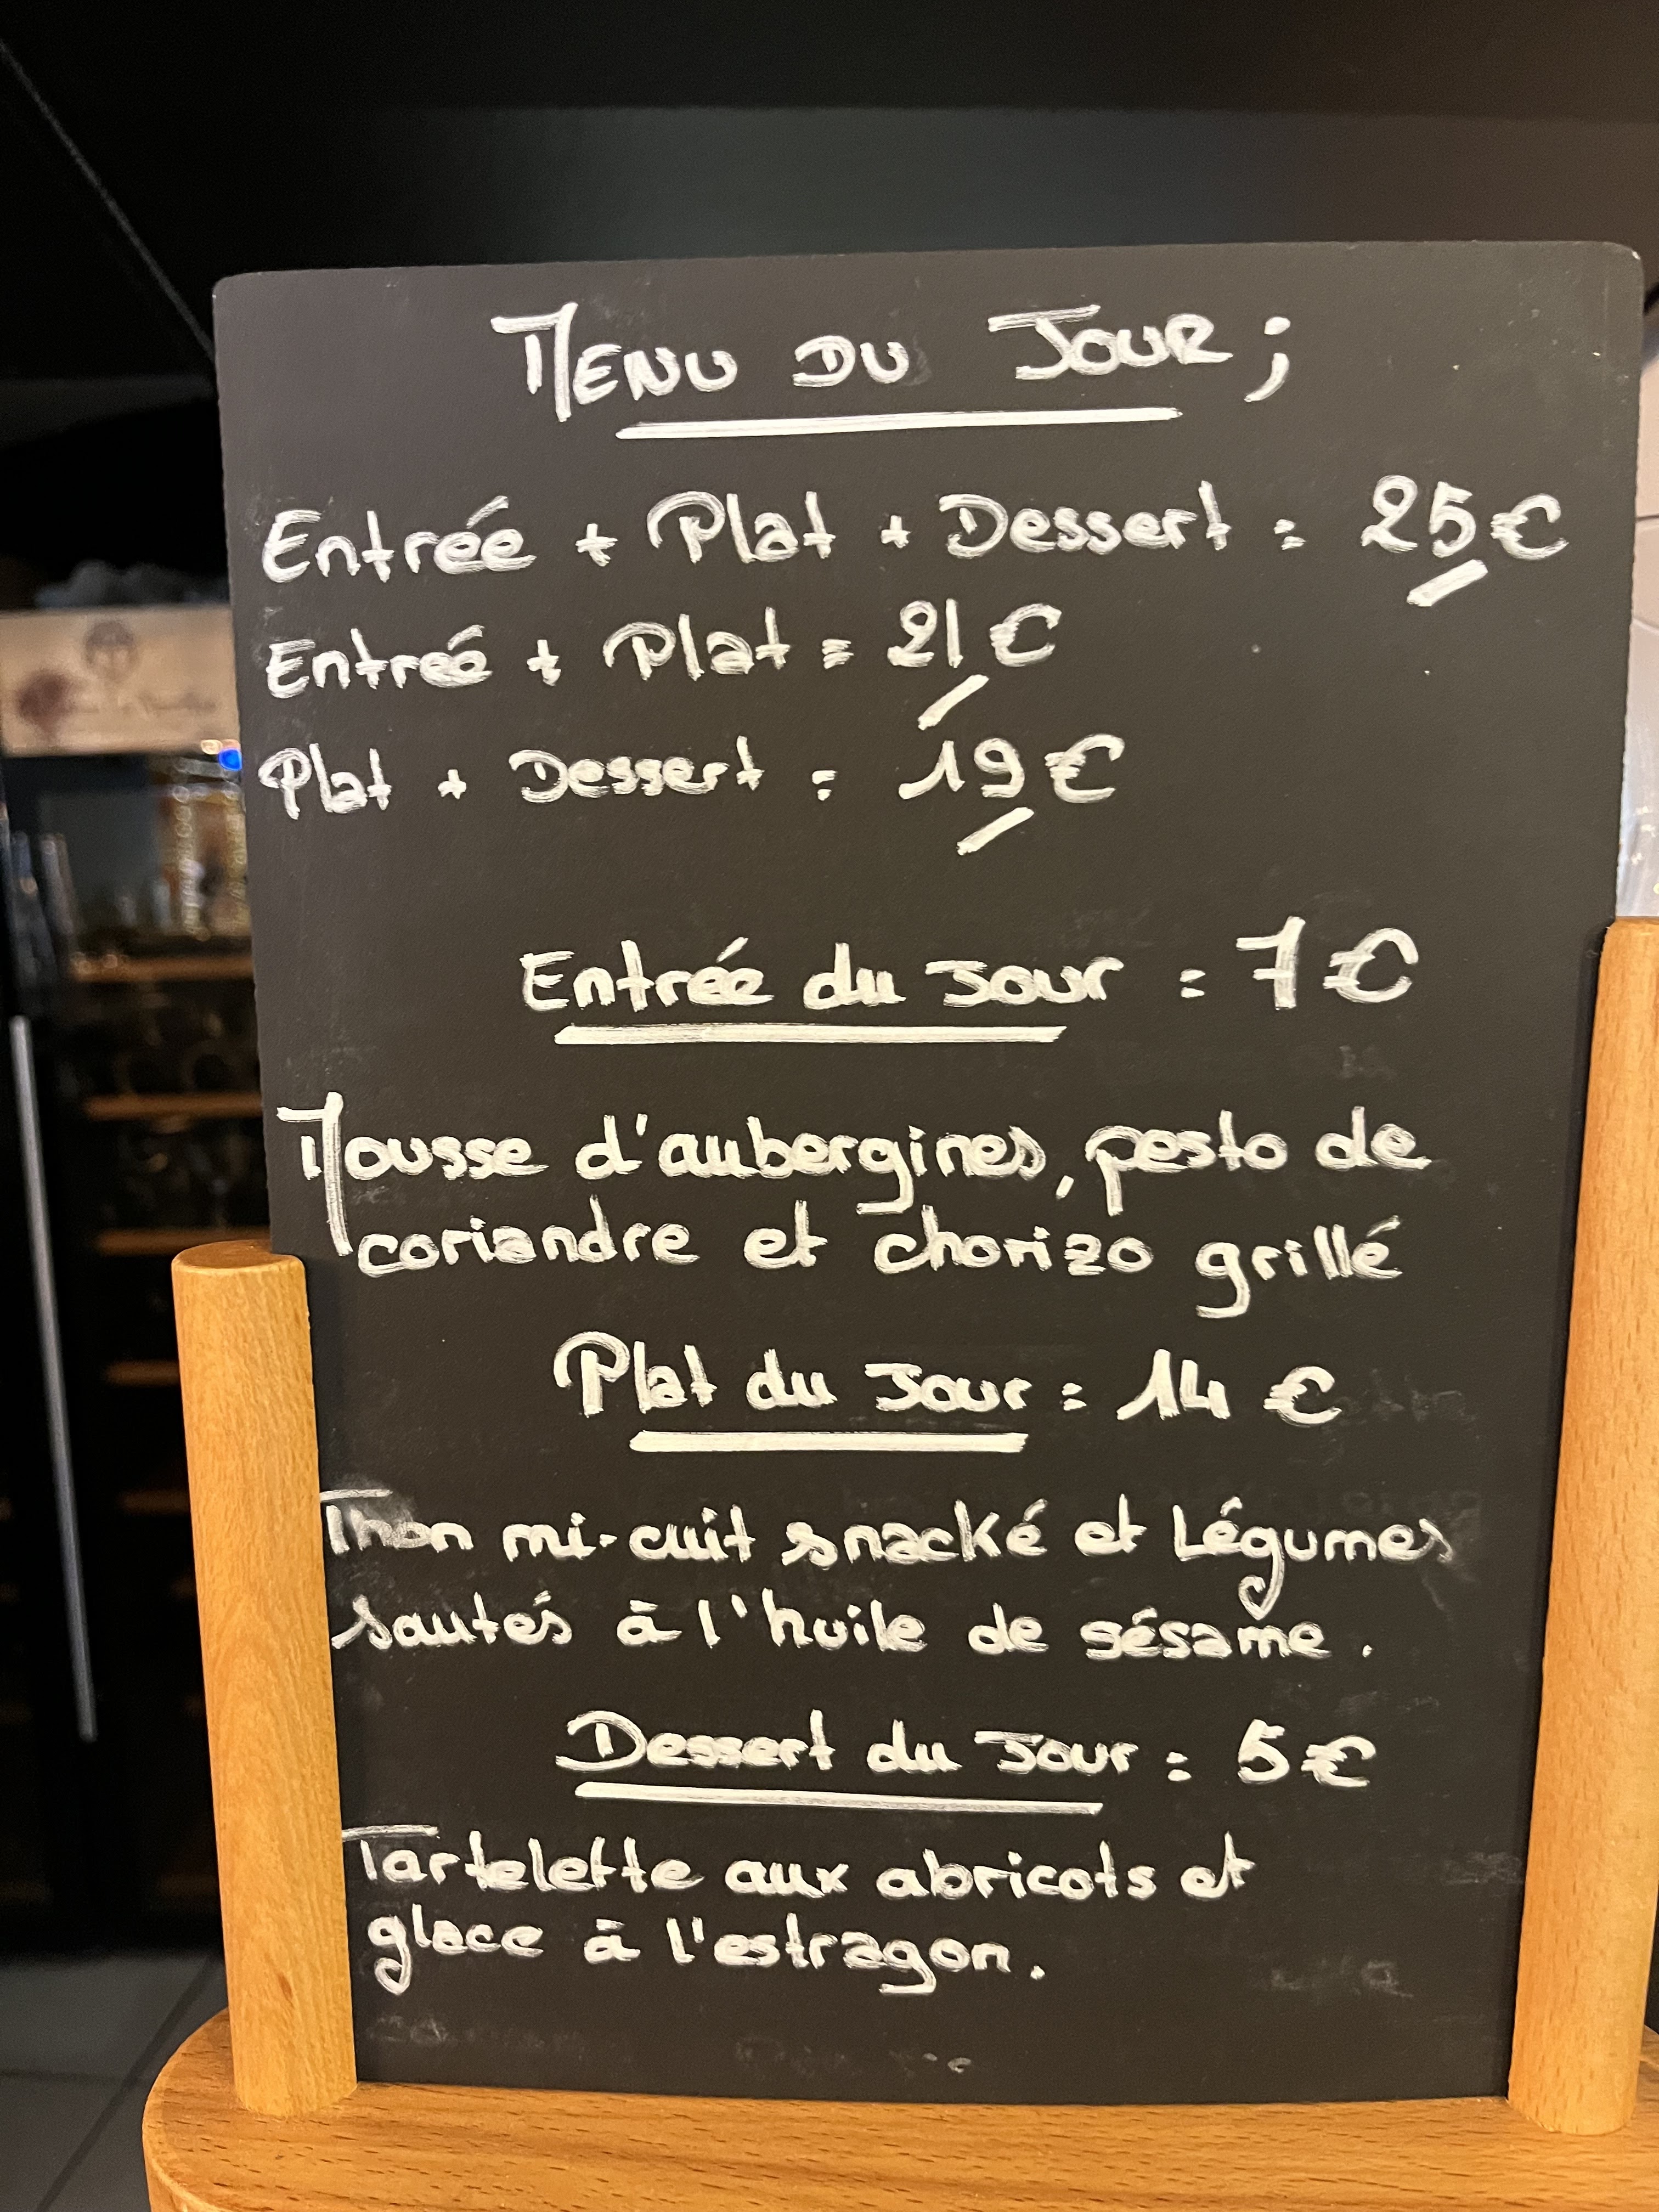 MENU DU JOUR ;
Entrée + Plat + Dessert = 25€
Entreé + Plat = 21€
Plat + Dessert = 19€
Entrée du Jour = 7€
Mousse d'aubergines, pesto de
coriandre et chorizo grillé
Plat du Jour = 14 €
Thon mi-cuit snacké et Légumes
sautés à l'huile de sésame.
Dessert du Jour = 5€
Tartelette aux abricots et
glace à l'estragon.